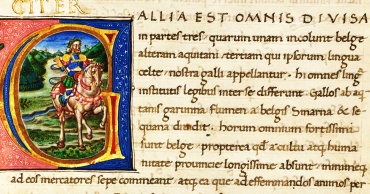 CITER
GALLIA EST OMNIS DIVISA
in partes tres: quarum unam incolunt belgę
alteram aquitani: tertiam qui ipsorum lingua
celtę nostra galli appellantur. hi omnes ling
institutis legibus inter se differunt. Gallos ab aq
tanis garumna flumen a belgis &
quana diuidit. horum omnium fortissimi
sunt belgę. propterea qđ a cultu atq; huma
nitate prouincię longissime absunt. minimeq;
ad eos mercatores sepe commeant atq; ea quę ad effeminandos animos per